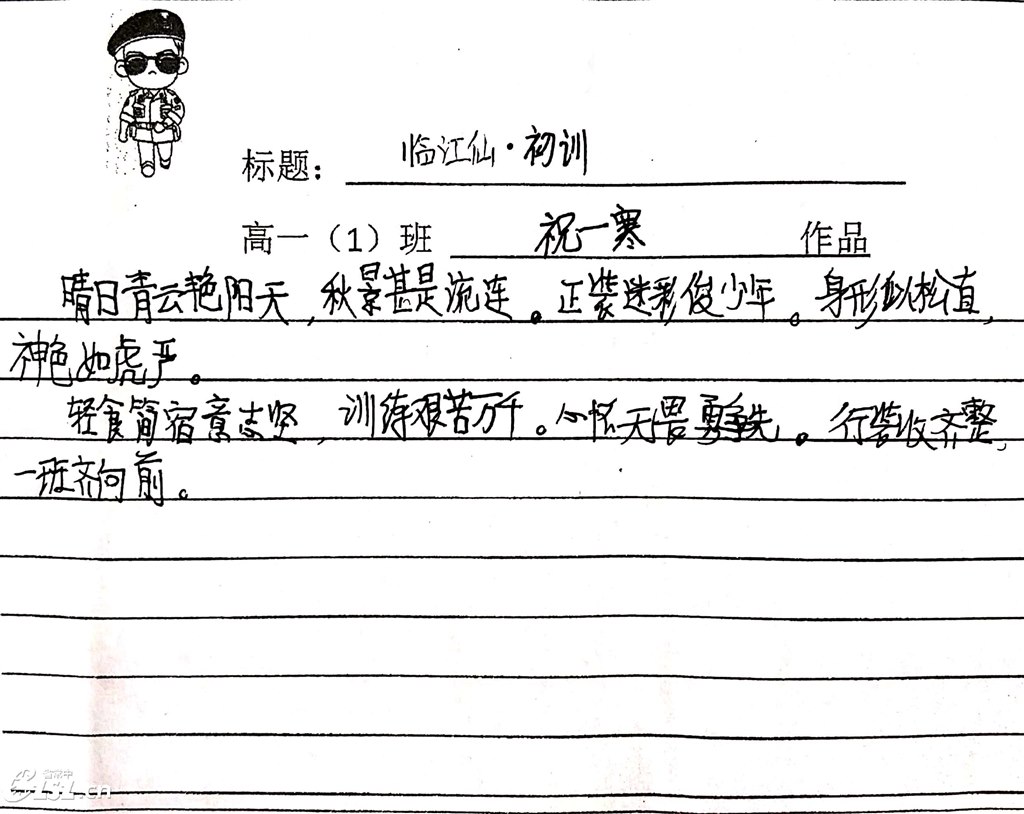 标题：临江仙·初训
高一（1）班 祝一寒 作品
晴日青云艳阳天，秋景甚是流连。正装迷彩俊少年。身形似松直，
神色如虎严。
轻食简宿意志坚，训练艰苦万千。心怀无畏勇争先。行装收齐整，
一班齐向前。